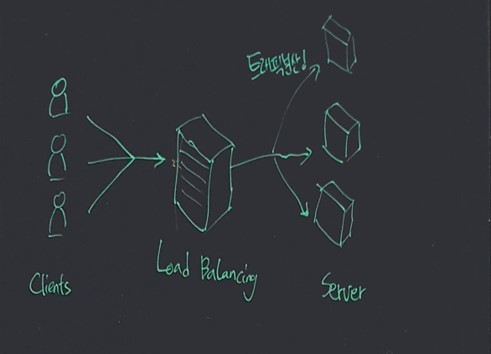 트래픽분산!
Clients
Load Balancing
Server